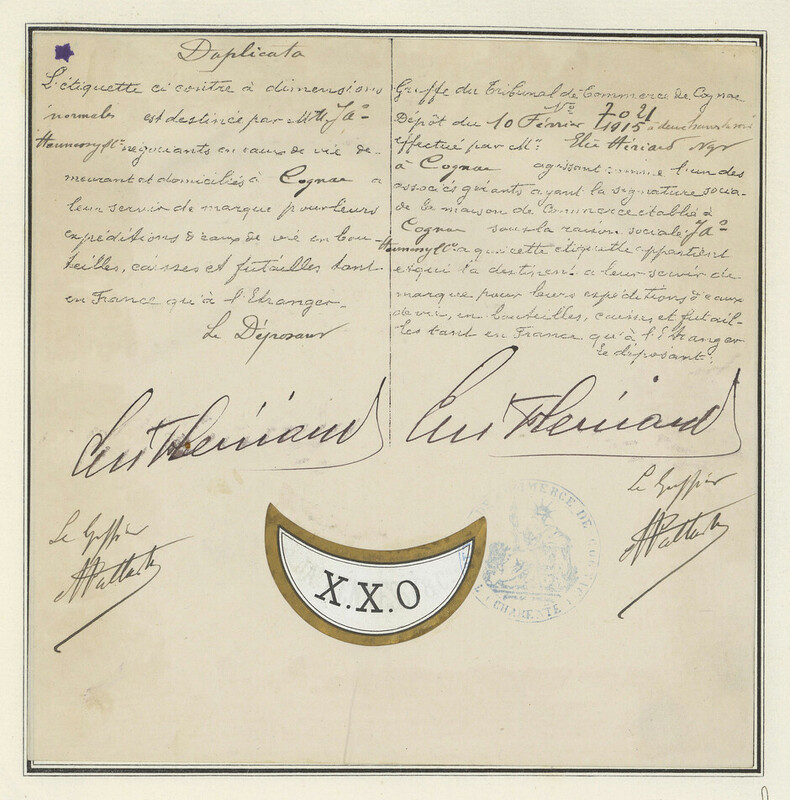 Duplicata
L'étiquette ci contre à dimensions
normales est destinée par MM. Jas
Hennessy & Cie négociants en eaux de vie de-
meurant et domiciliés à Cognac a
leur servir de marque pour leurs
expéditions d'eaux de vie en bou-
teilles, caisses et futailles tant
en France qu'à l'Etranger.
Le Déposant
Greffe du Tribunal de Commerce de Cognac
No 7021
Dépôt du 10 Février 1915 à deux heures
effectué par Mr. Elie Hériard
à Cognac agissant comme l'un des
associés gérants ayant la signature socia-
le de la maison de Commerce établie à
Cognac sous la raison sociale Jas
Hennessy & Cie a qui cette étiquette appartient
et qui la destinent a leur servir de
marque pour leurs expéditions d'eaux
de vie, en bouteilles, caisses et futail-
les tant en France qu'à l'Etranger
Le déposant:
Le Greffier
Le Greffier
X.X.O
COMMERCE DE
(CHARENTE)